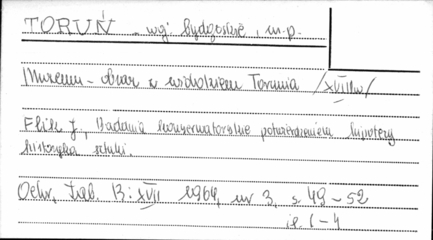 TORUŃ - woj. Bydgoskie, m.p.
Muzeum - obraz z widokiem Torunia /XVIII w/
Flik J., Badania konserwatorskie potwierdzeniem hipotezy
historyka sztuki.
Ochr. Zab. R: XVII 1964, nr 3, s. 49-52
il. 1-4